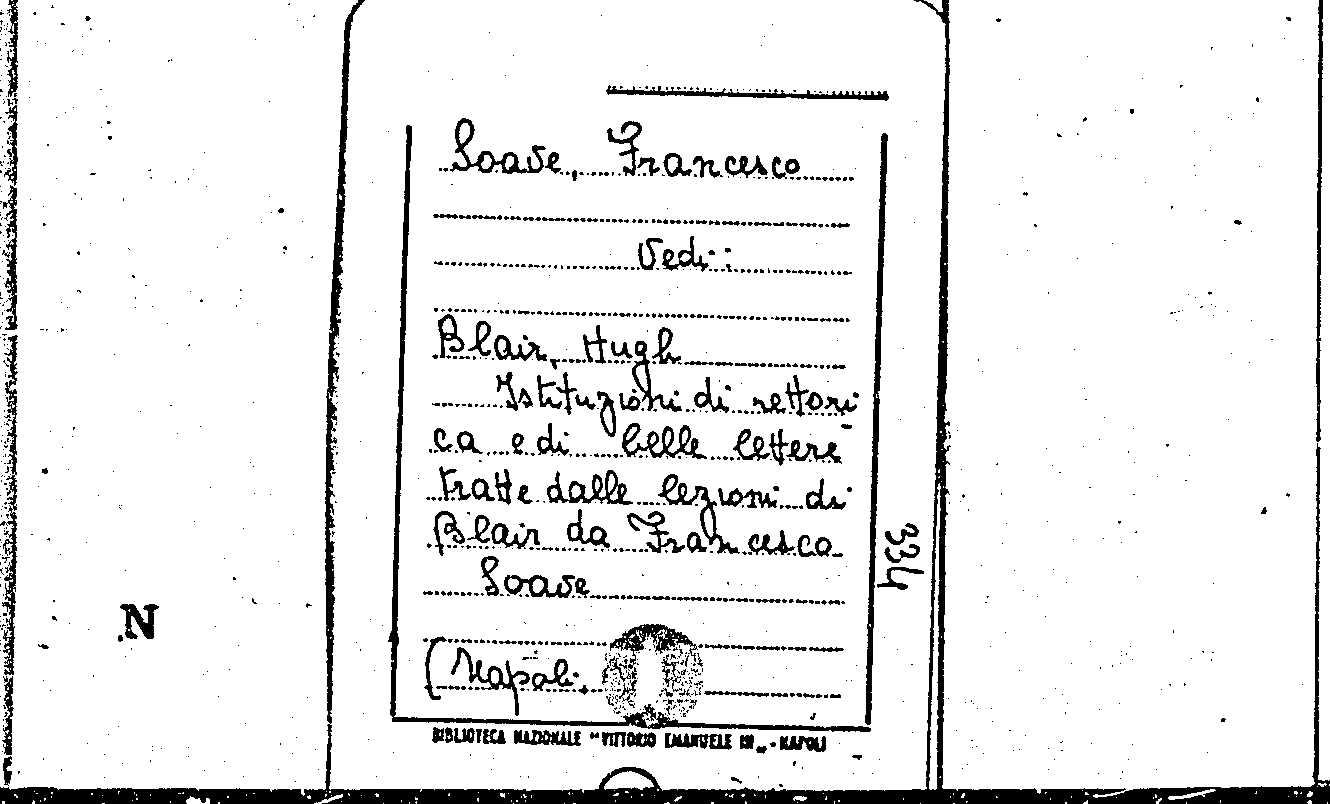 Soave, Francesco
Vedi:
Blair, Hugh
Istituzioni di rettori-
ca e di belle lettere
tratte dalle lezioni di
Blair da Francesco
Soave
(Napoli,
334
N
BIBLIOTECA NAZIONALE "VITTORIO EMANUELE III" - NAPOLI